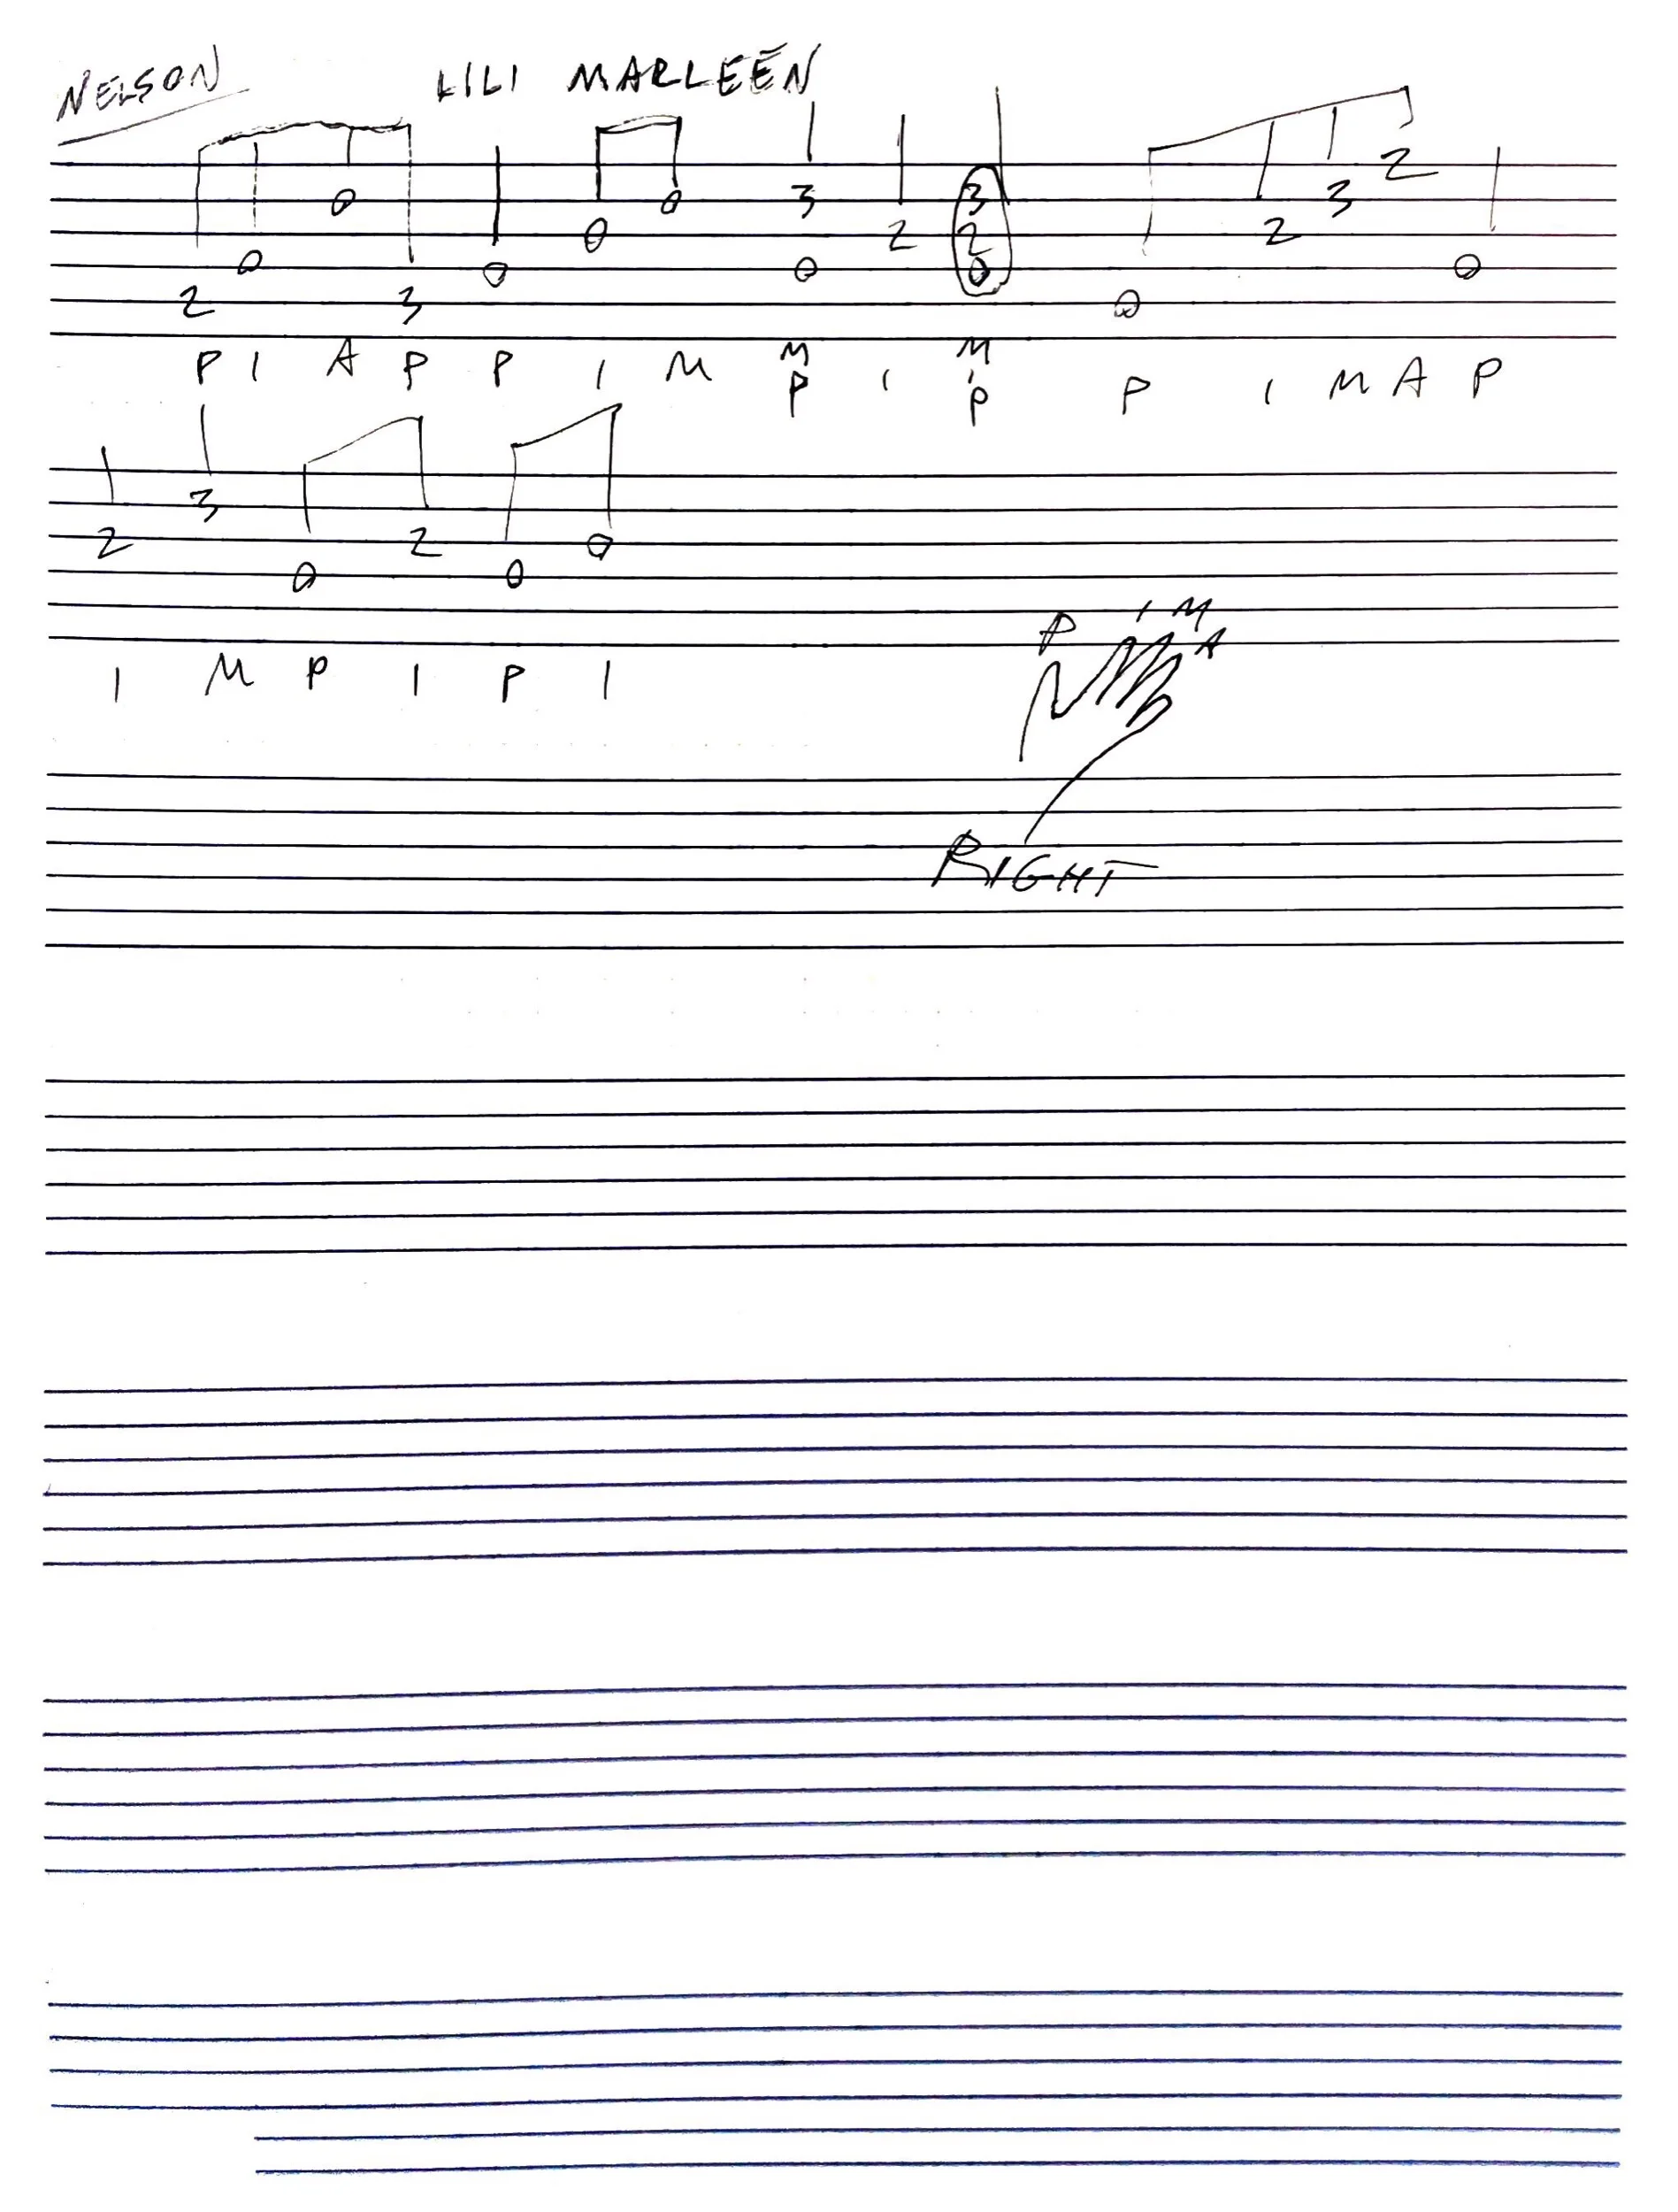 NELSON LILI MARLEEN
2
3 2
0 0 3 3 3
0 2 2 2
0 0 0 0 0
2 3 0
P I A P P I M M I M P I M A P
P I
P
3
2 2 0
0 0
P I M A
I M P I P I
RIGHT